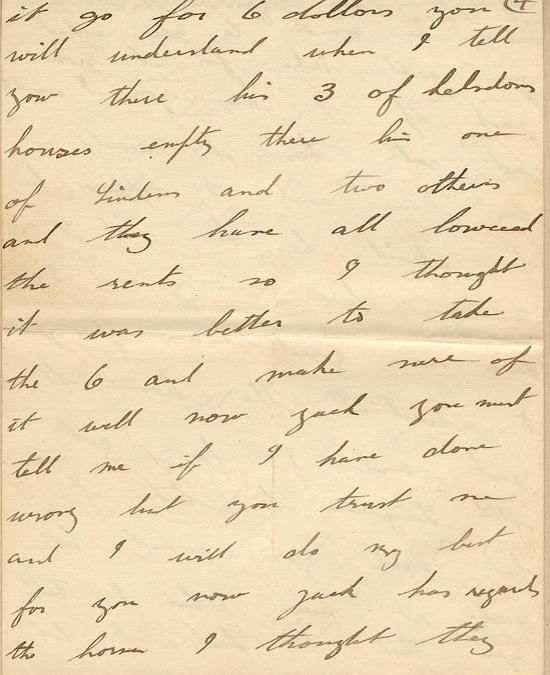 it go for 6 dollors you (4
will understand when I tell
you there his 3 of helsdons
houses empty there his one
of Lindens and two others
and they have all lowered
the rents so I thought
it was better to take
the 6 and make sure of
it well now jack you must
tell me if I have done
wrong but you trust me
and I will do my best
for you now jack has regards
the horses I thought they